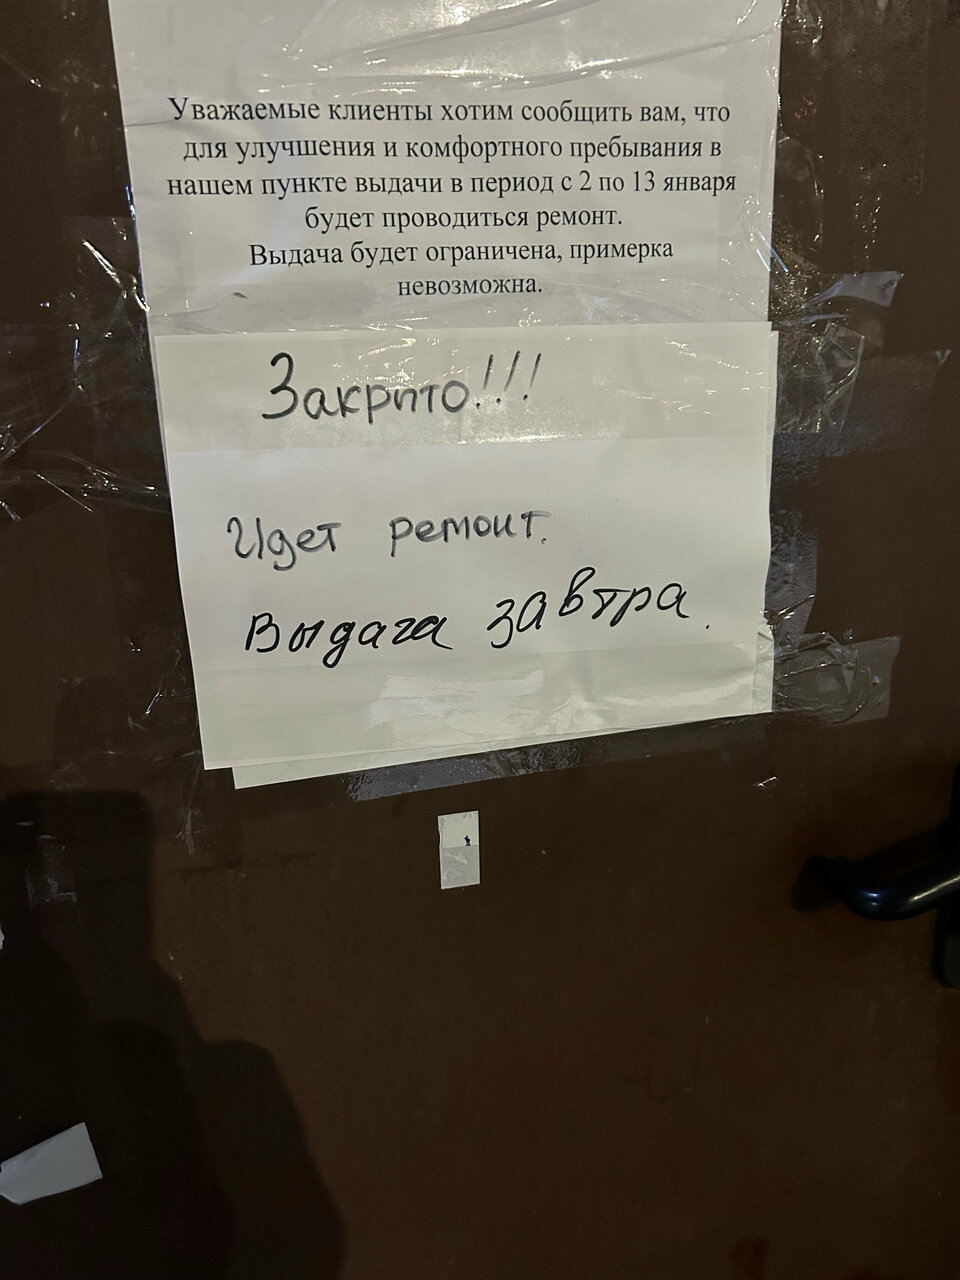 Уважаемые клиенты хотим сообщить вам, что
для улучшения и комфортного пребывания в
нашем пункте выдачи в период с 2 по 13 января
будет проводиться ремонт.
Выдача будет ограничена, примерка
невозможна.
Закрито!!!
Идет ремонт.
Выдача завтра.